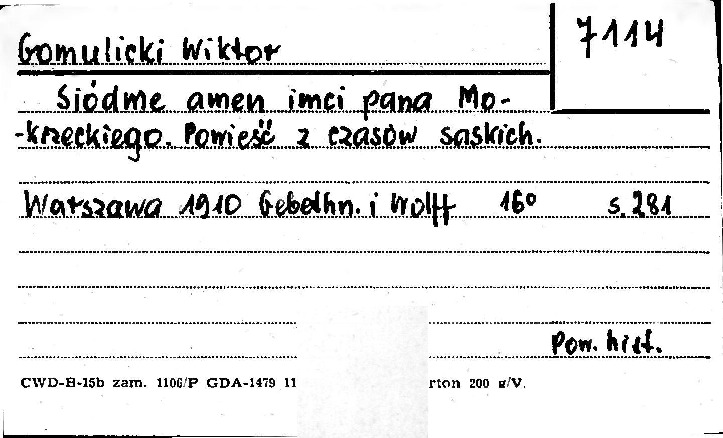 7114
Gomulicki Wiktor
Siódme amen imci pana Mo-
-krzeckiego. Powieść z czasów saskich.
Warszawa 1910 Gebethn. i Wolff 16° s. 281
Pow. hist.
CWD-H-15b zam. 1106/P GDA-1479 11 rton 200 g/V.